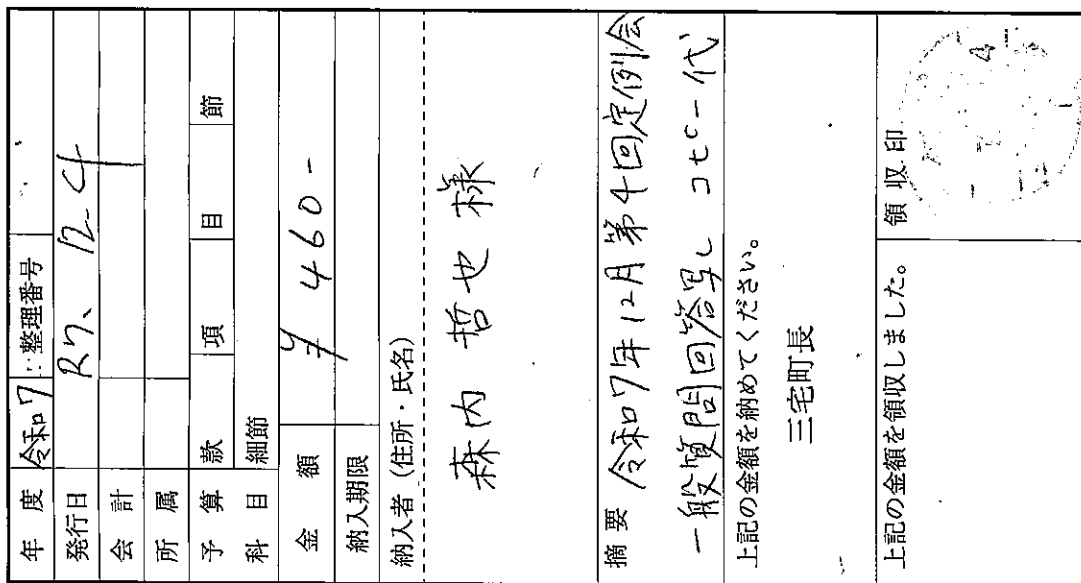 年 度 令和7 整理番号
発行日 R7、12-4
会 計
所 属
予 算 科 目 款 項 目 節
細節
金 額 ¥ 460-
納入期限
納入者(住所・氏名)
森内 哲也 様
摘 要 令和7年12月第4回定例会
一般質問回答写し コピー代
上記の金額を納めてください。
三宅町長
上記の金額を領収しました。
領 収 印